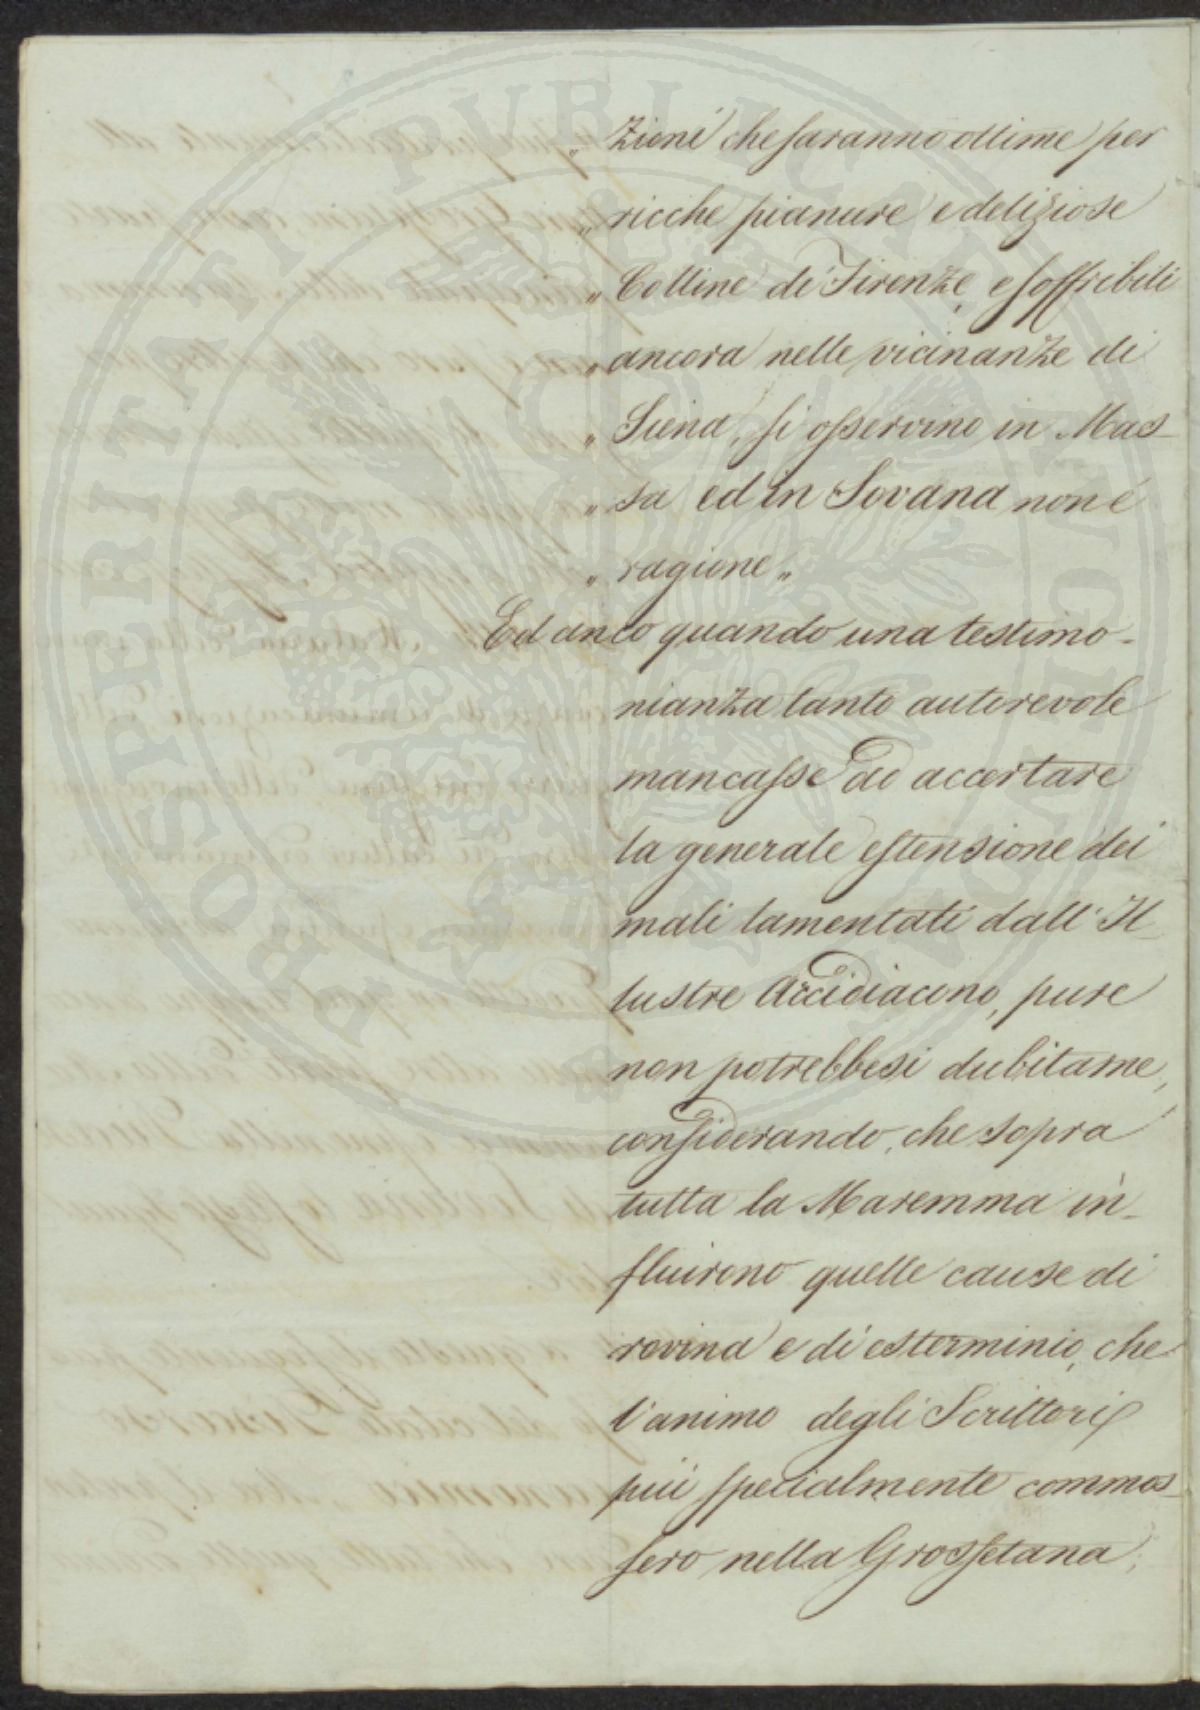 „ zioni che saranno ottime per
„ ricche pianure e deliziose
„ Colline di Firenze, e soffribili
„ ancora nelle vicinanze di
„ Siena, si osservino in Mas-
„ sa ed in Sovana non è
„ ragione „
Ed anco quando una testimo-
nianza tanto autorevole
mancasse ad accertare
la generale estensione dei
mali lamentati dall' Il-
lustre Arcidiacono, pure
non potrebbesi dubitarne,
considerando, che sopra
tutta la Maremma in-
fluirono quelle cause di
rovina e di esterminio, che
l'animo degli Scrittori
più specialmente commos-
sero nella Grossetana,
PROSPERITATI PUBLICAE AUGENDAE